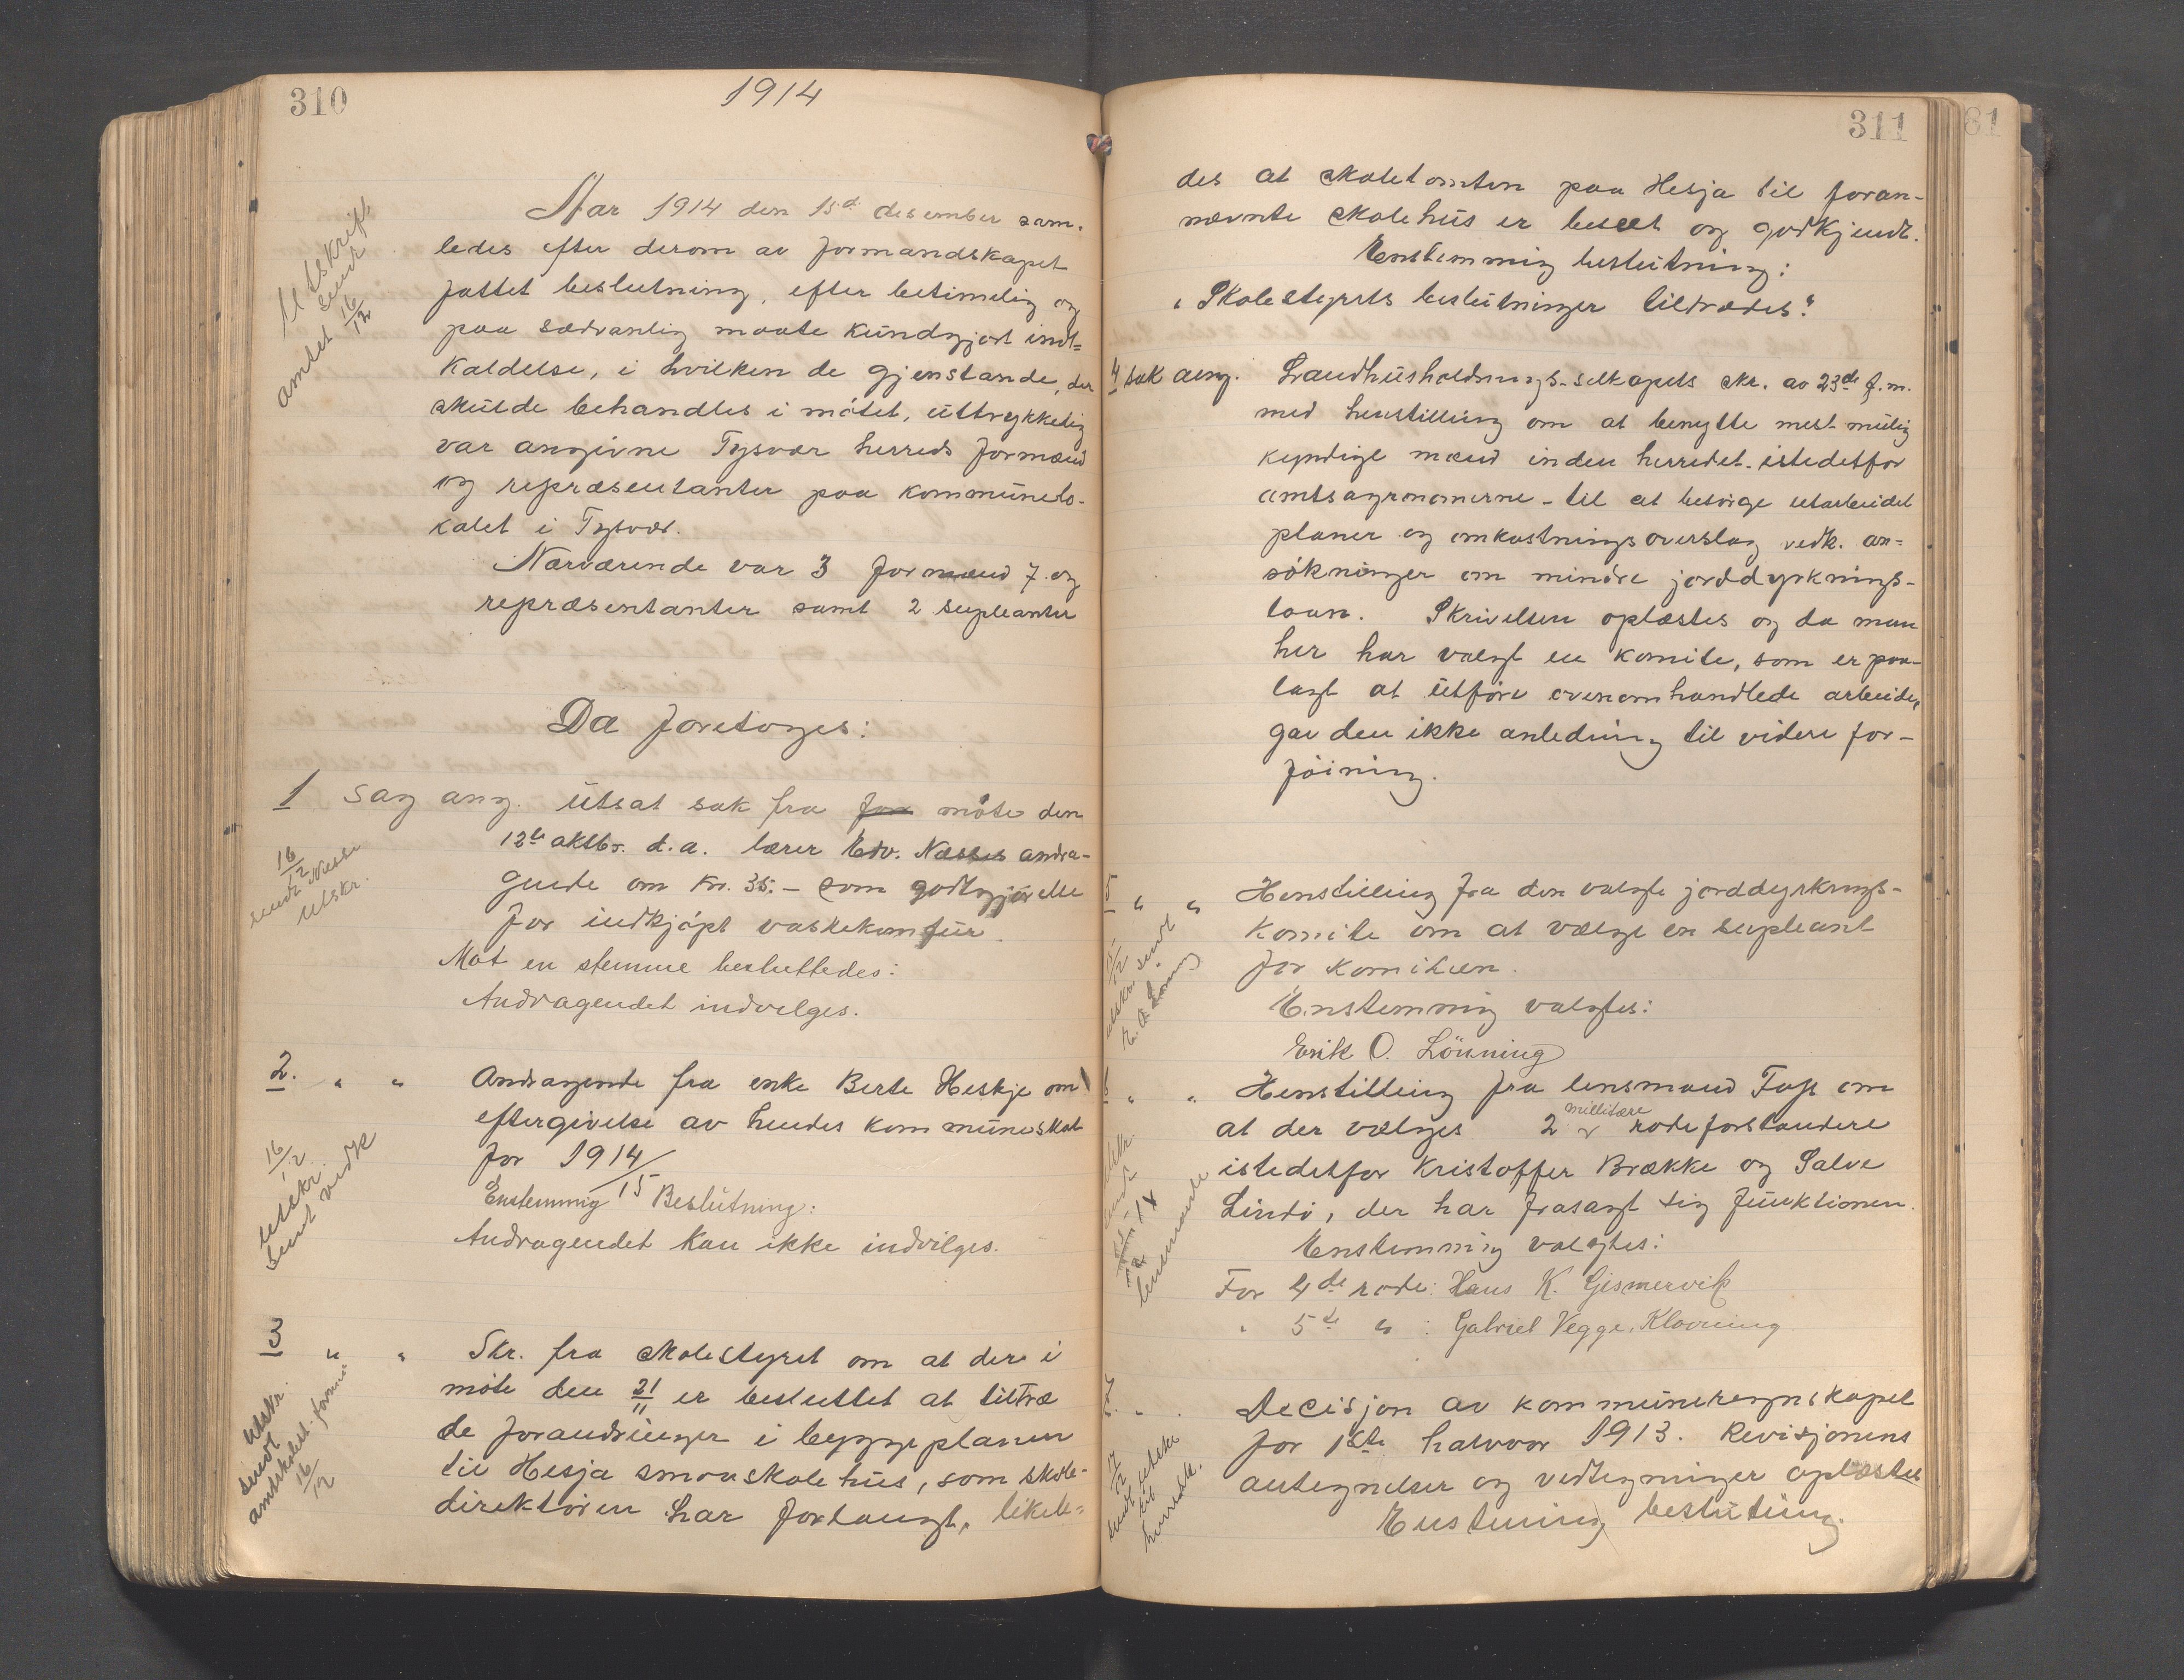 310
1914
Aar 1914 den 15d desember sam-
ledes efter derom av formandskapet
fattet beslutning, efter betimelig og
paa sedvanlig maate kundgjort ind-
kaldelse, i hvilken de gjenstande, der
skulde behandles i møtet, uttrykkelig
var angivne Tysvær herreds formænd
og repræsentanter paa kommunelo-
kalet i Tysvær.
Nærværende var 3 formænd 7 og
repræsentanter samt 2 supleanter
Utskrift
sendt
amtet 16/12
Da foretoges:
1 Sag ang. utsat sak fra for møte den
12te aktbr. d.a. lærer Edv. Næsses andra-
gende om Kr. 35.- som godtgjørelse
for indkjøpt vaskekomfür.
Mot en stemme besluttedes:
Andragendet indvilges.
16/12
sendt Næsse
Utskr.
2. " " Andragende fra enke Berte Heskje om
eftergivelse av hendes kommuneskat
for 1914/15
Enstemmig Beslutning:
Andragendet kan ikke indvilges.
16/12
utskr.
sent vedk
3 " " Skr. fra skolestyret om at der i
møte den 21/11 er besluttet at tiltræ
de forandringer i byggeplanen
til Hesja smaaskolehus, som skole-
direktøren har forlangt, likele-
Utskr.
sendt
amtskolest. formd
16/12
311
81
des at skoletomten paa Hesja til foran-
nævnte skolehus er beseet og godkjendt.
Enstemmig beslutning:
" Skolestyrets beslutninger tiltrædes."
4 sak ang. Landhusholdnings-selkapets skr. av 23de f.m.
med henstilling om at benytte mest mulig
kyndige mænd inden herredet - istedetfor
amtsagronomerne - til at besørge utarbeidet
planer og omkostningsoverslag vedk. an-
søkninger om mindre jorddyrknings-
laan. Skrivelsen oplæstes og da man
her har valgt en komite, som er paa-
lagt at utføre ovenomhandlede arbeider,
gav den ikke anledning til videre for-
føining.
5 " " Henstilling fra den valgte jorddyrknings-
komite om at vælge en supleant
for komiteen.
Enstemmig valgtes:
Erik O. Lönning
utskr. sendt
E. O. Lönning
6 " " Henstilling fra lensmand Fass om
at der vælges 2 millitære rodeforstandere
istedetfor Kristoffer Brække og Salve
Lindø, der har frasagt sig funktionen.
Enstemmig valgtes:
For 4de rode: Hans K. Gismervik
" 5te " : Gabriel Vegge, Klovning
sendt
lensmande
7. " " Decisjon av kommuneregnskapet
for 1ste halvaar 1913. Revisjonens
antegnelser og vedtegninger oplæstes
Enstemmig beslutning.
sendt utskr
til
herredsk.